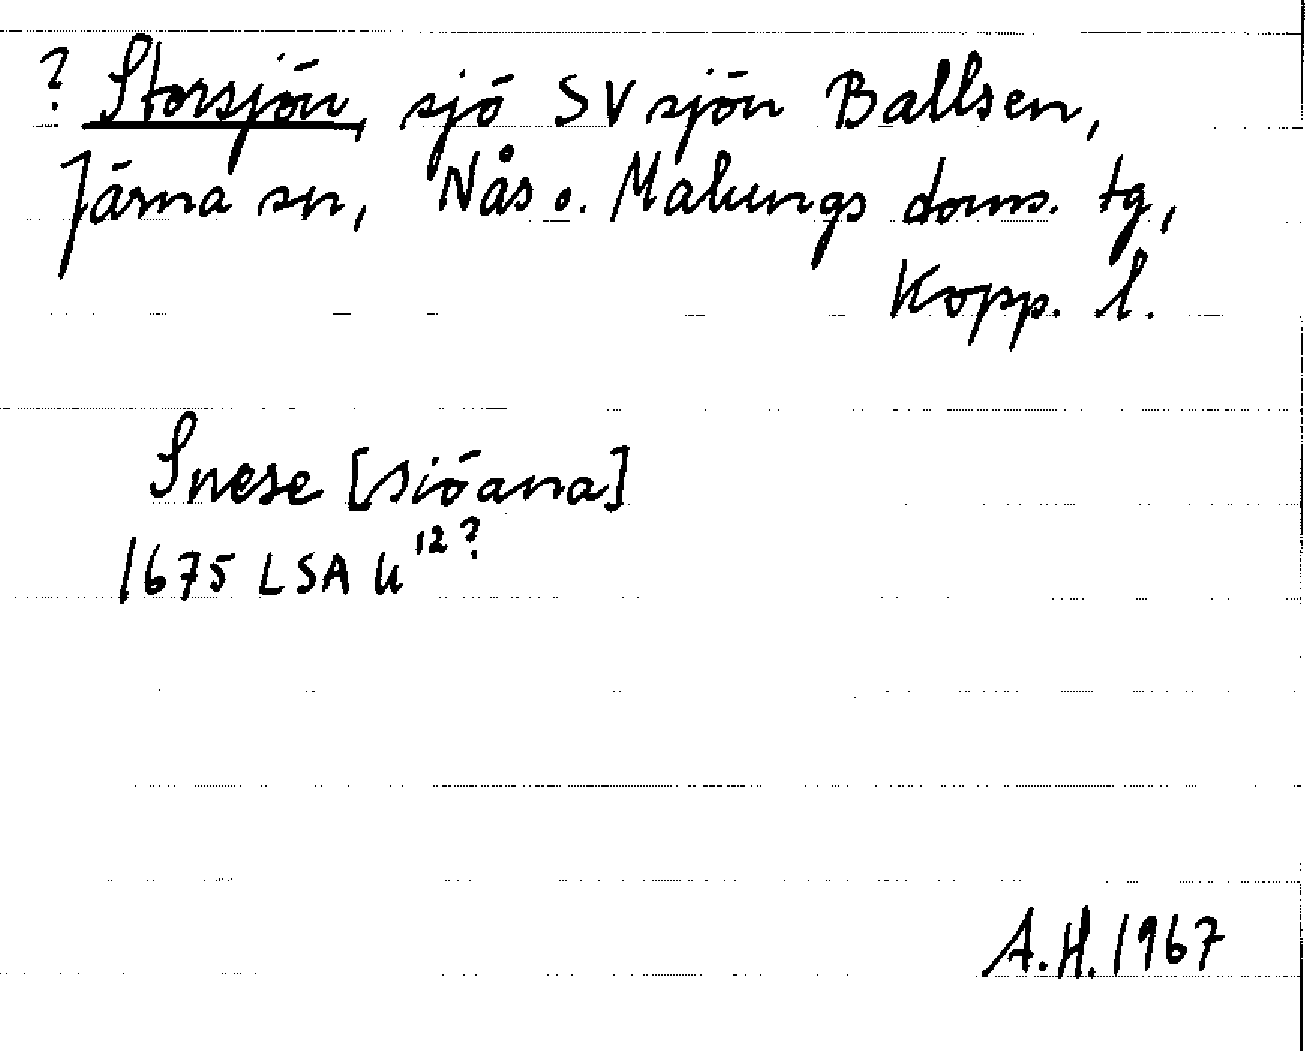 ? Storsjön, sjö SV sjön Ballsen,
Järna sn, Nås o. Malungs doms. tg,
Kopp. l.
Snese [siöana]
1675 LSA U 12?
A.H. 1967